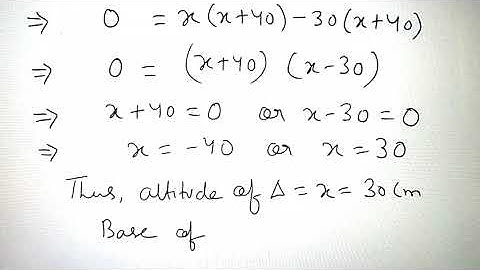 ⇒ 0 = x(x+40)-30(x+40)
⇒ 0 = (x+40) (x-30)
⇒ x+40=0 or x-30=0
⇒ x=-40 or x=30
Thus, altitude of Δ = x = 30 cm
Base of